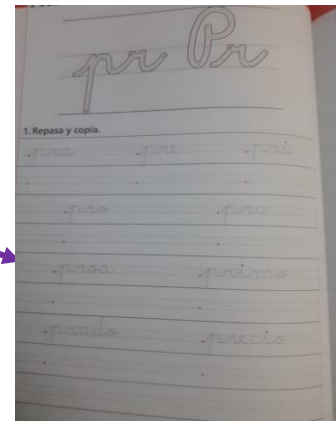 pr Pr
1. Repasa y copia.
pra pre pri
pro pru
proa primo
prado precio